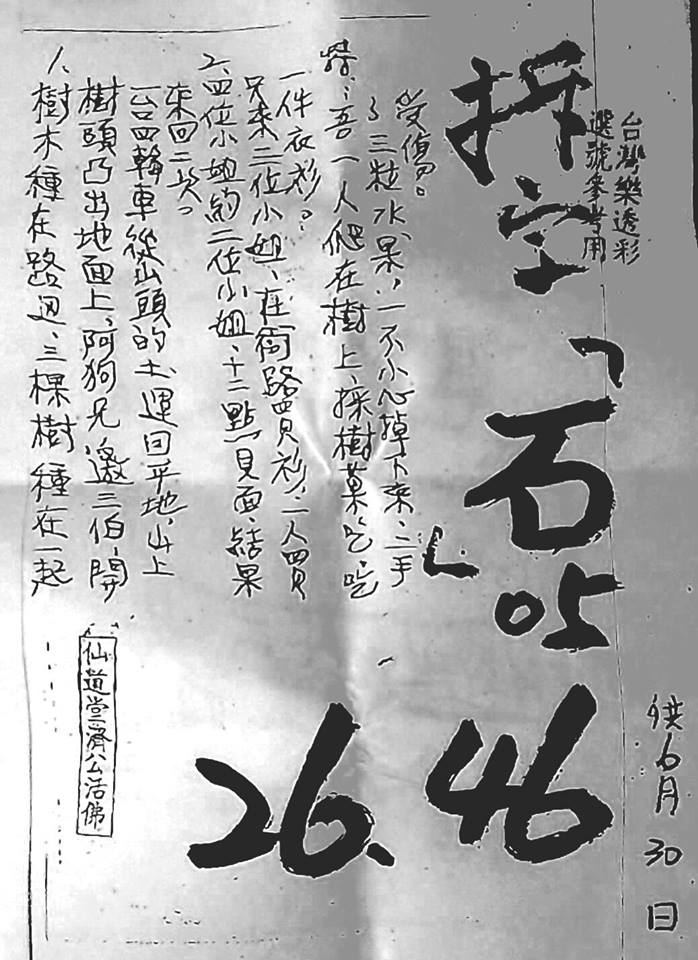 台灣樂透彩
選號參考用
拆字「石」
05
46
26、
供6月30日
1、樹木種在路邊、三棵樹種在一起
樹頭凸出地面上,阿狗兄邀三伯,開
一台四輪車從山頭的土運回平地,山上
來回二次。
2、四位小姐約二位小姐,十二點見面、結果
只來二位小姐、在街路買衫,一人買
一件衣衫。
特:吾一人爬在樹上,採樹菓吃,吃
了三粒水果,一不小心掉下來,二手
受傷。
仙道堂濟公活佛